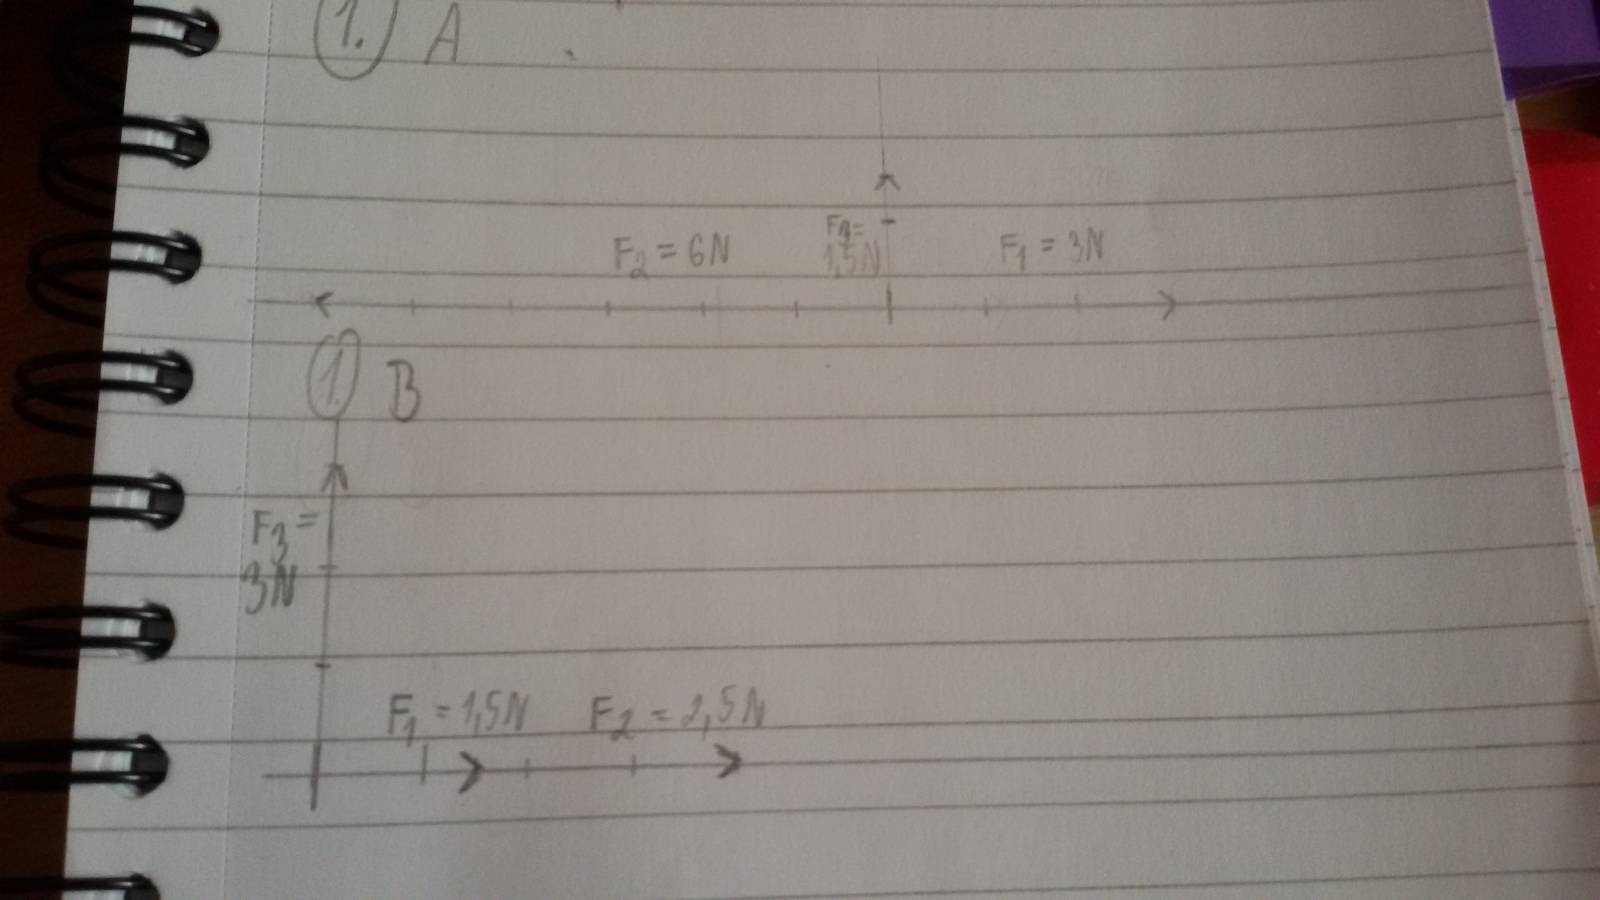 1. A
F2 = 6N
F3 =
1,5N
F1 = 3N
1. B
F3 =
3N
F1 = 1,5N
F2 = 2,5N